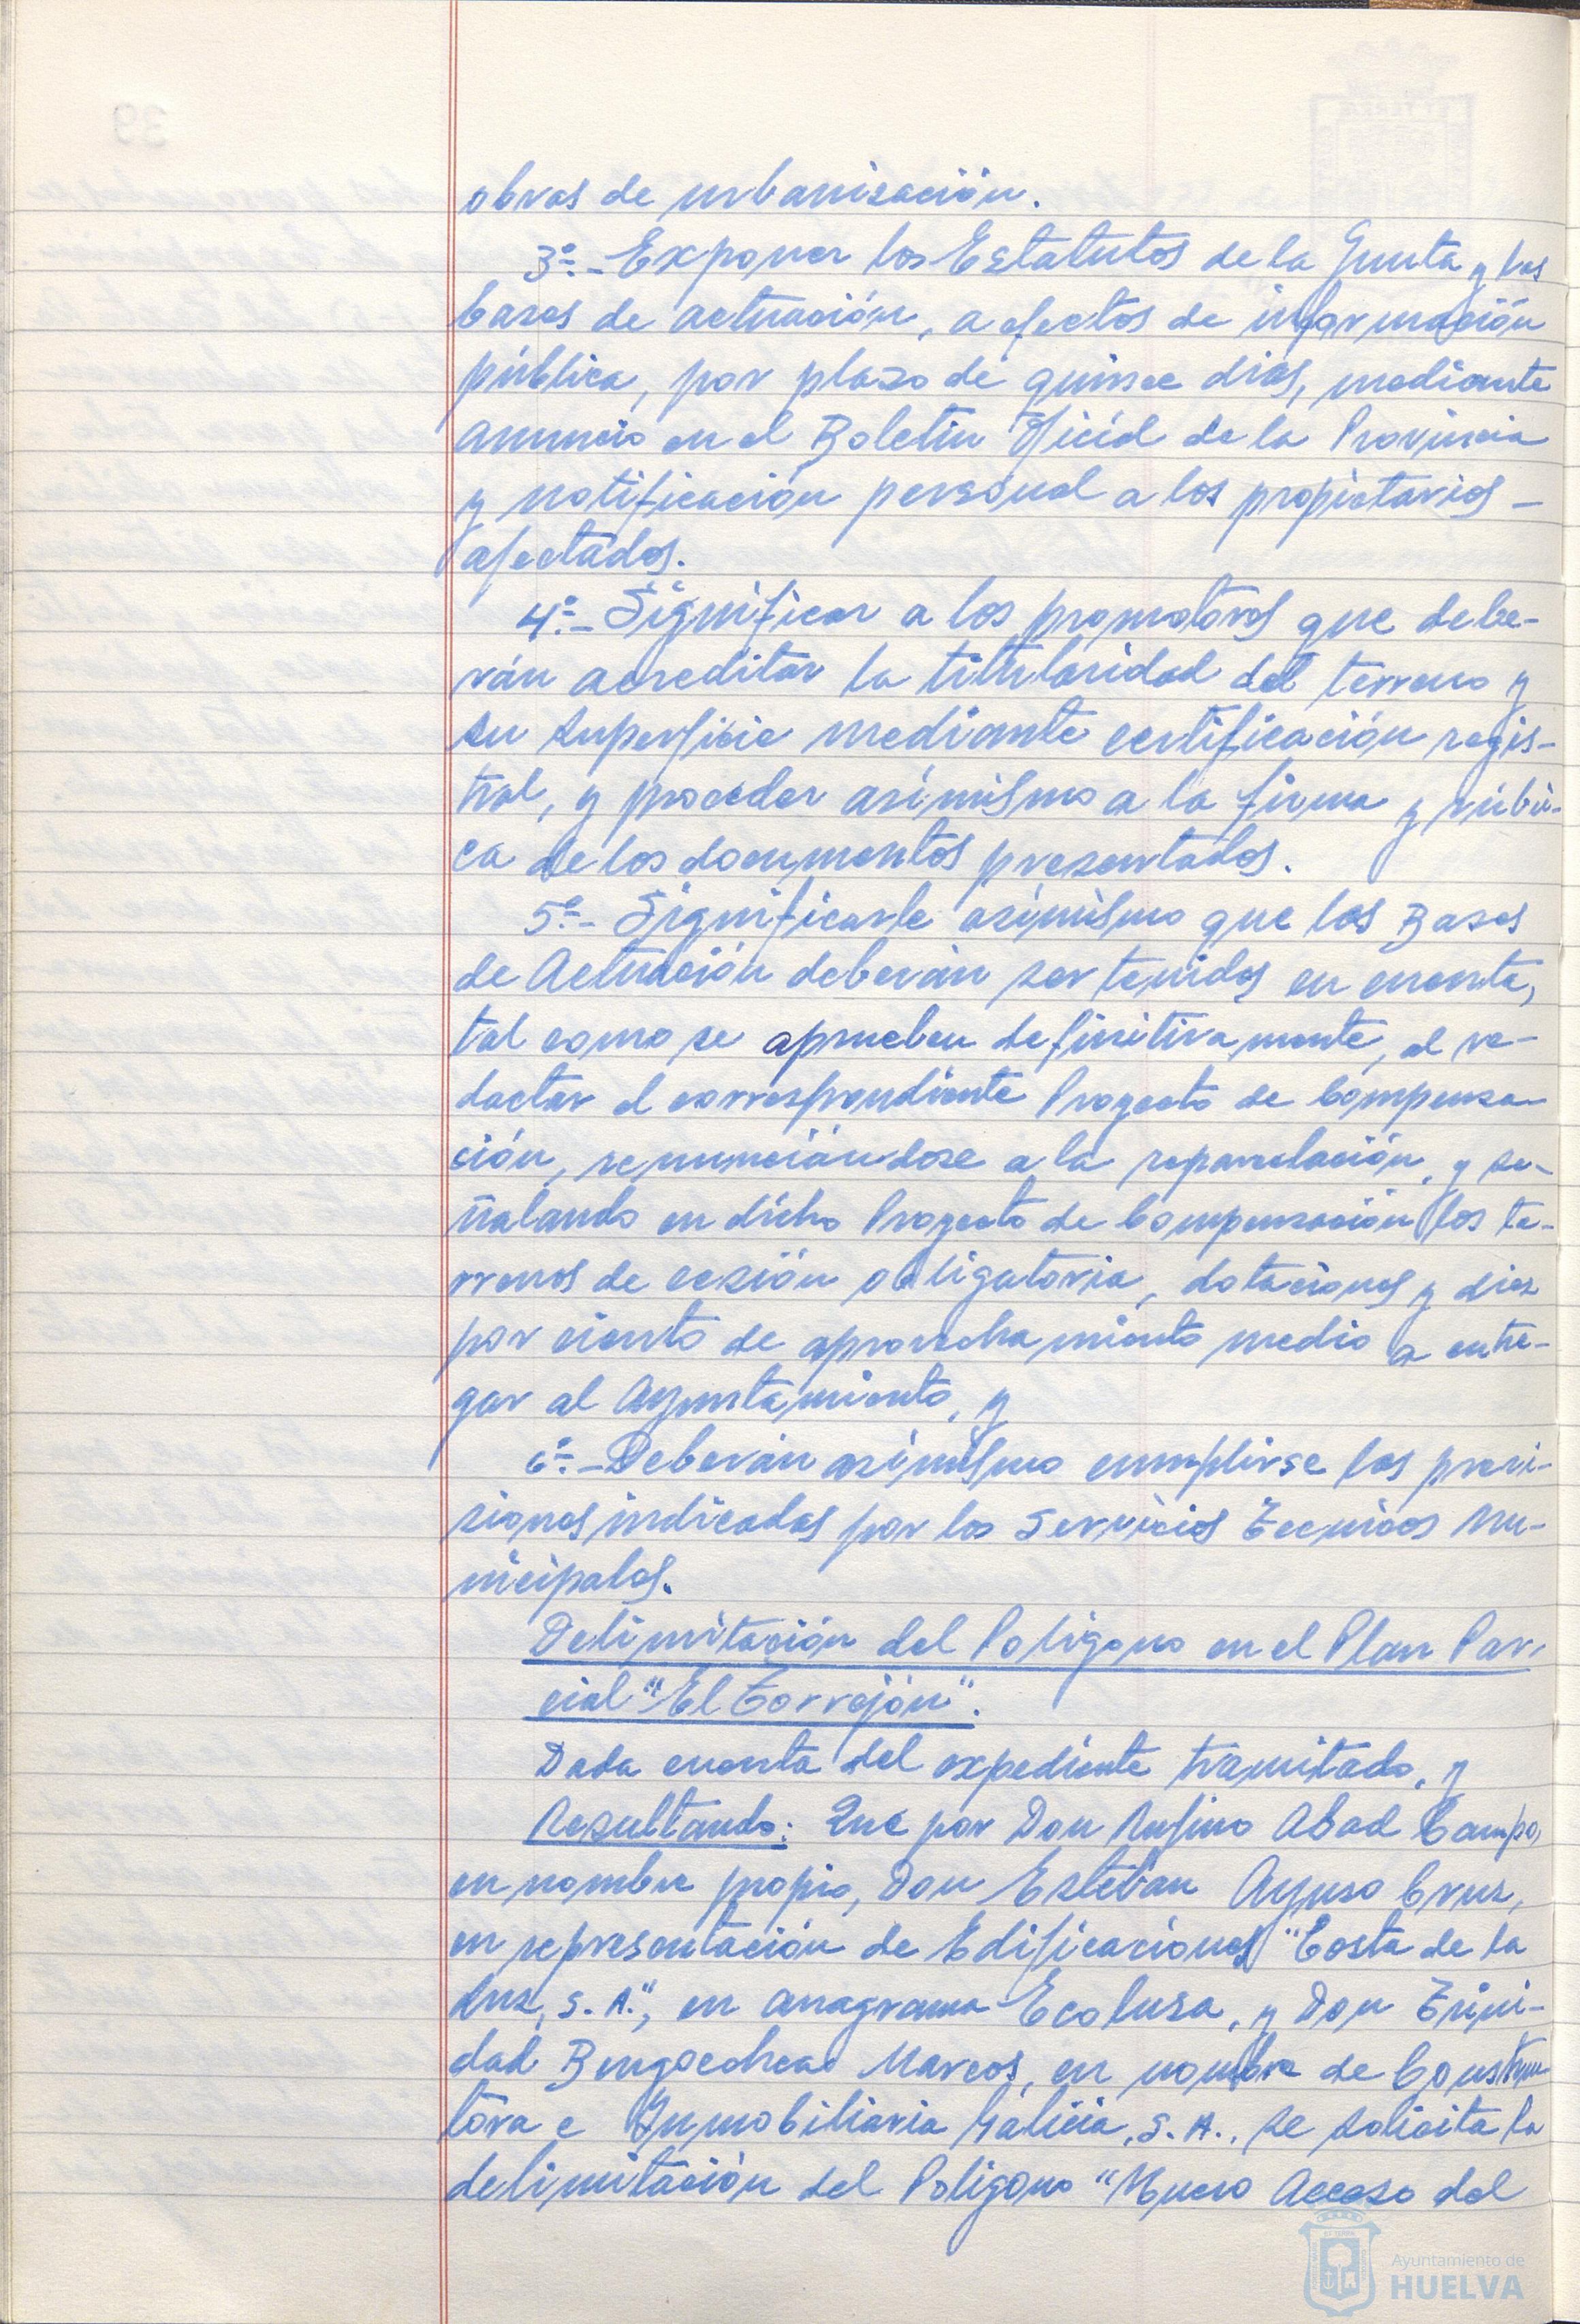 obras de urbanización.
3º.- Exponer los Estatutos de la Junta y las
bases de actuación, a efectos de información
pública, por plazo de quince dias, mediante
anuncio en el Boletin Oficial de la Provincia
y notificación personal a los propietarios -
afectados.
4º.- Significar a los promotores que debe-
rán acreditar la titularidad del terreno y
su superficie mediante certificación regis-
tral, y proceder asimismo a la firma y rúbri-
ca de los documentos presentados.
5º.- Significarle asimismo que las Bases
de Actuación deberán ser tenidas en cuenta,
tal como se aprueben definitivamente, al re-
dactar el correspondiente Proyecto de Compensa-
ción, renunciándose a la reparcelación, y se-
ñalando en dicho Proyecto de Compensación los te-
rrenos de cesión obligatoria, dotaciones y diez
por ciento de aprovechamiento medio a entre-
gar al Ayuntamiento, y
6º.- Deberán asimismo cumplirse las previ-
siones indicadas por los Servicios Tecnicos Mu-
nicipales.
Delimitación del Poligono en el Plan Par-
cial "El Torrejón".
Dada cuenta del expediente tramitado, y
Resultando: Que por Don Rufino Abad Campo,
en nombre propio, Don Esteban Ayuso Cruz,
en representación de Edificaciones "Costa de la
Luz, S. A.", en anagrama Ecolusa, y Don Trini-
dad Bengoechea Marcos, en nombre de Construc-
tora e Inmobiliaria Galicia, S. A., se solicita la
delimitación del Poligono "Nuevo Acceso del
Ayuntamiento de
HUELVA